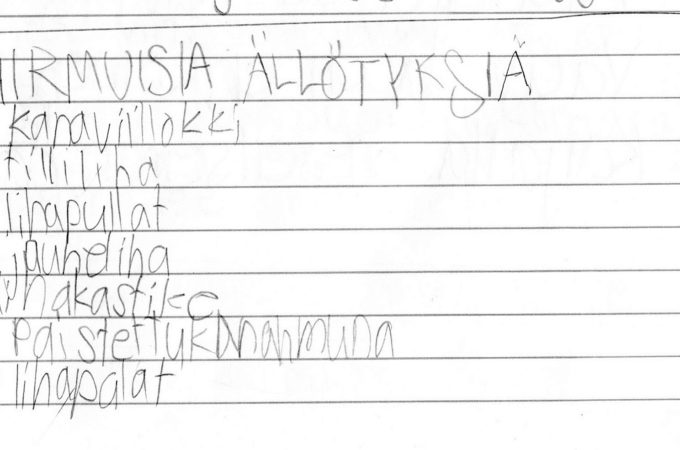 HIRMUISIA ÄLLÖTYKSIÄ
kanaviillokki
tilliliha
lihapullat
jauheliha
Paistettukananmuna
lihapalat